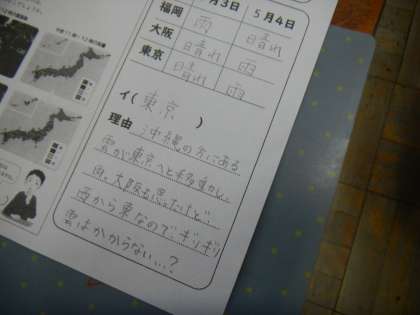 月3日 5月4日
福岡 雨 晴れ
大阪 晴れ 雨
東京 晴れ 雨
イ(東京)
理由 沖縄の方にある
雲が東京へと移動かし、
西、大阪も思ったけど、
西から東なので、ギリギリ
雲はかからない…?